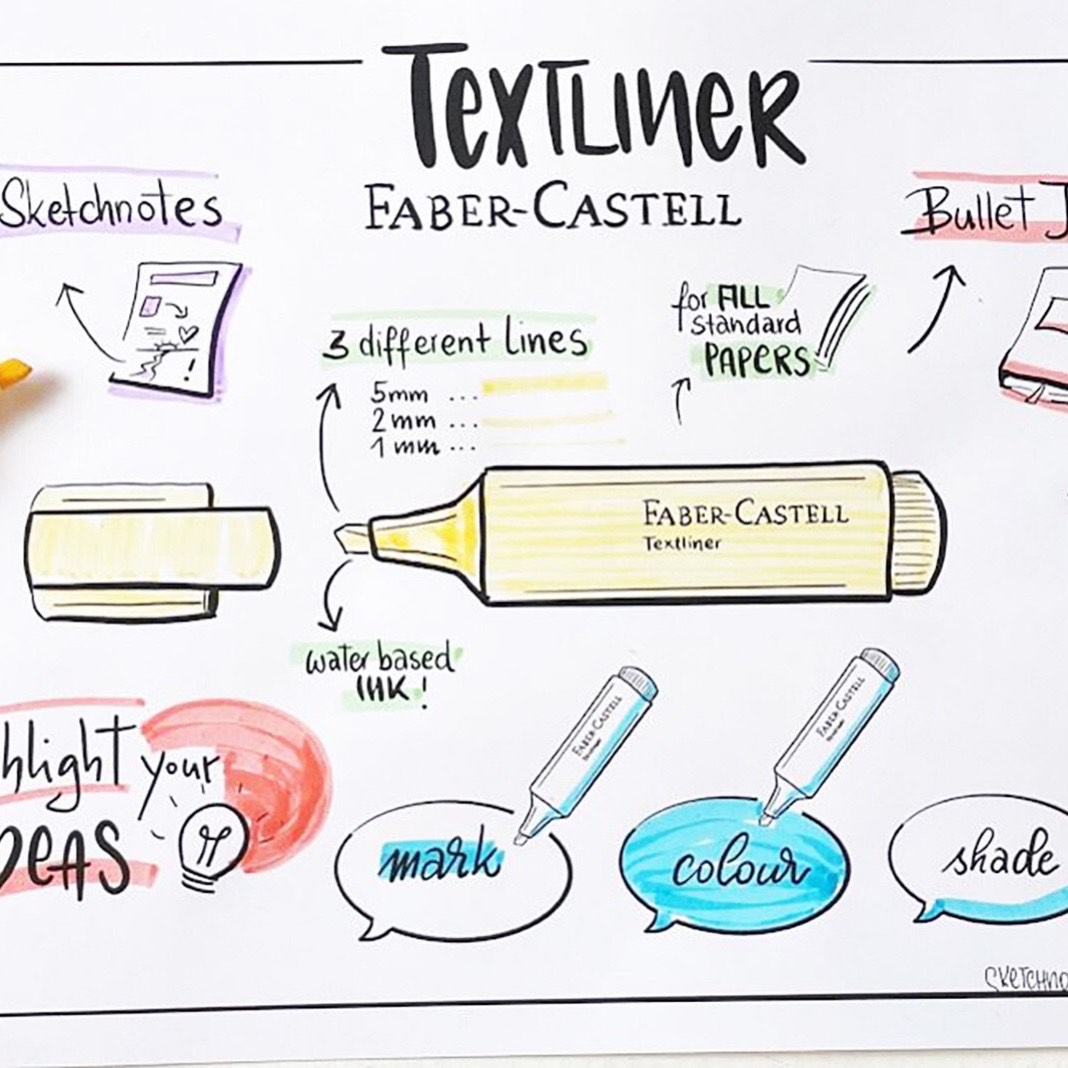 Textliner
FABER-CASTELL
Sketchnotes
Bullet J
3 different lines
5mm ...
2mm ...
1mm ...
for ALL
standard
PAPERS
FABER-CASTELL
Textliner
water based
INK!
hlight your
DEAS
FABER-CASTELL
FABER-CASTELL
mark
colour
shade
SKETCHNO